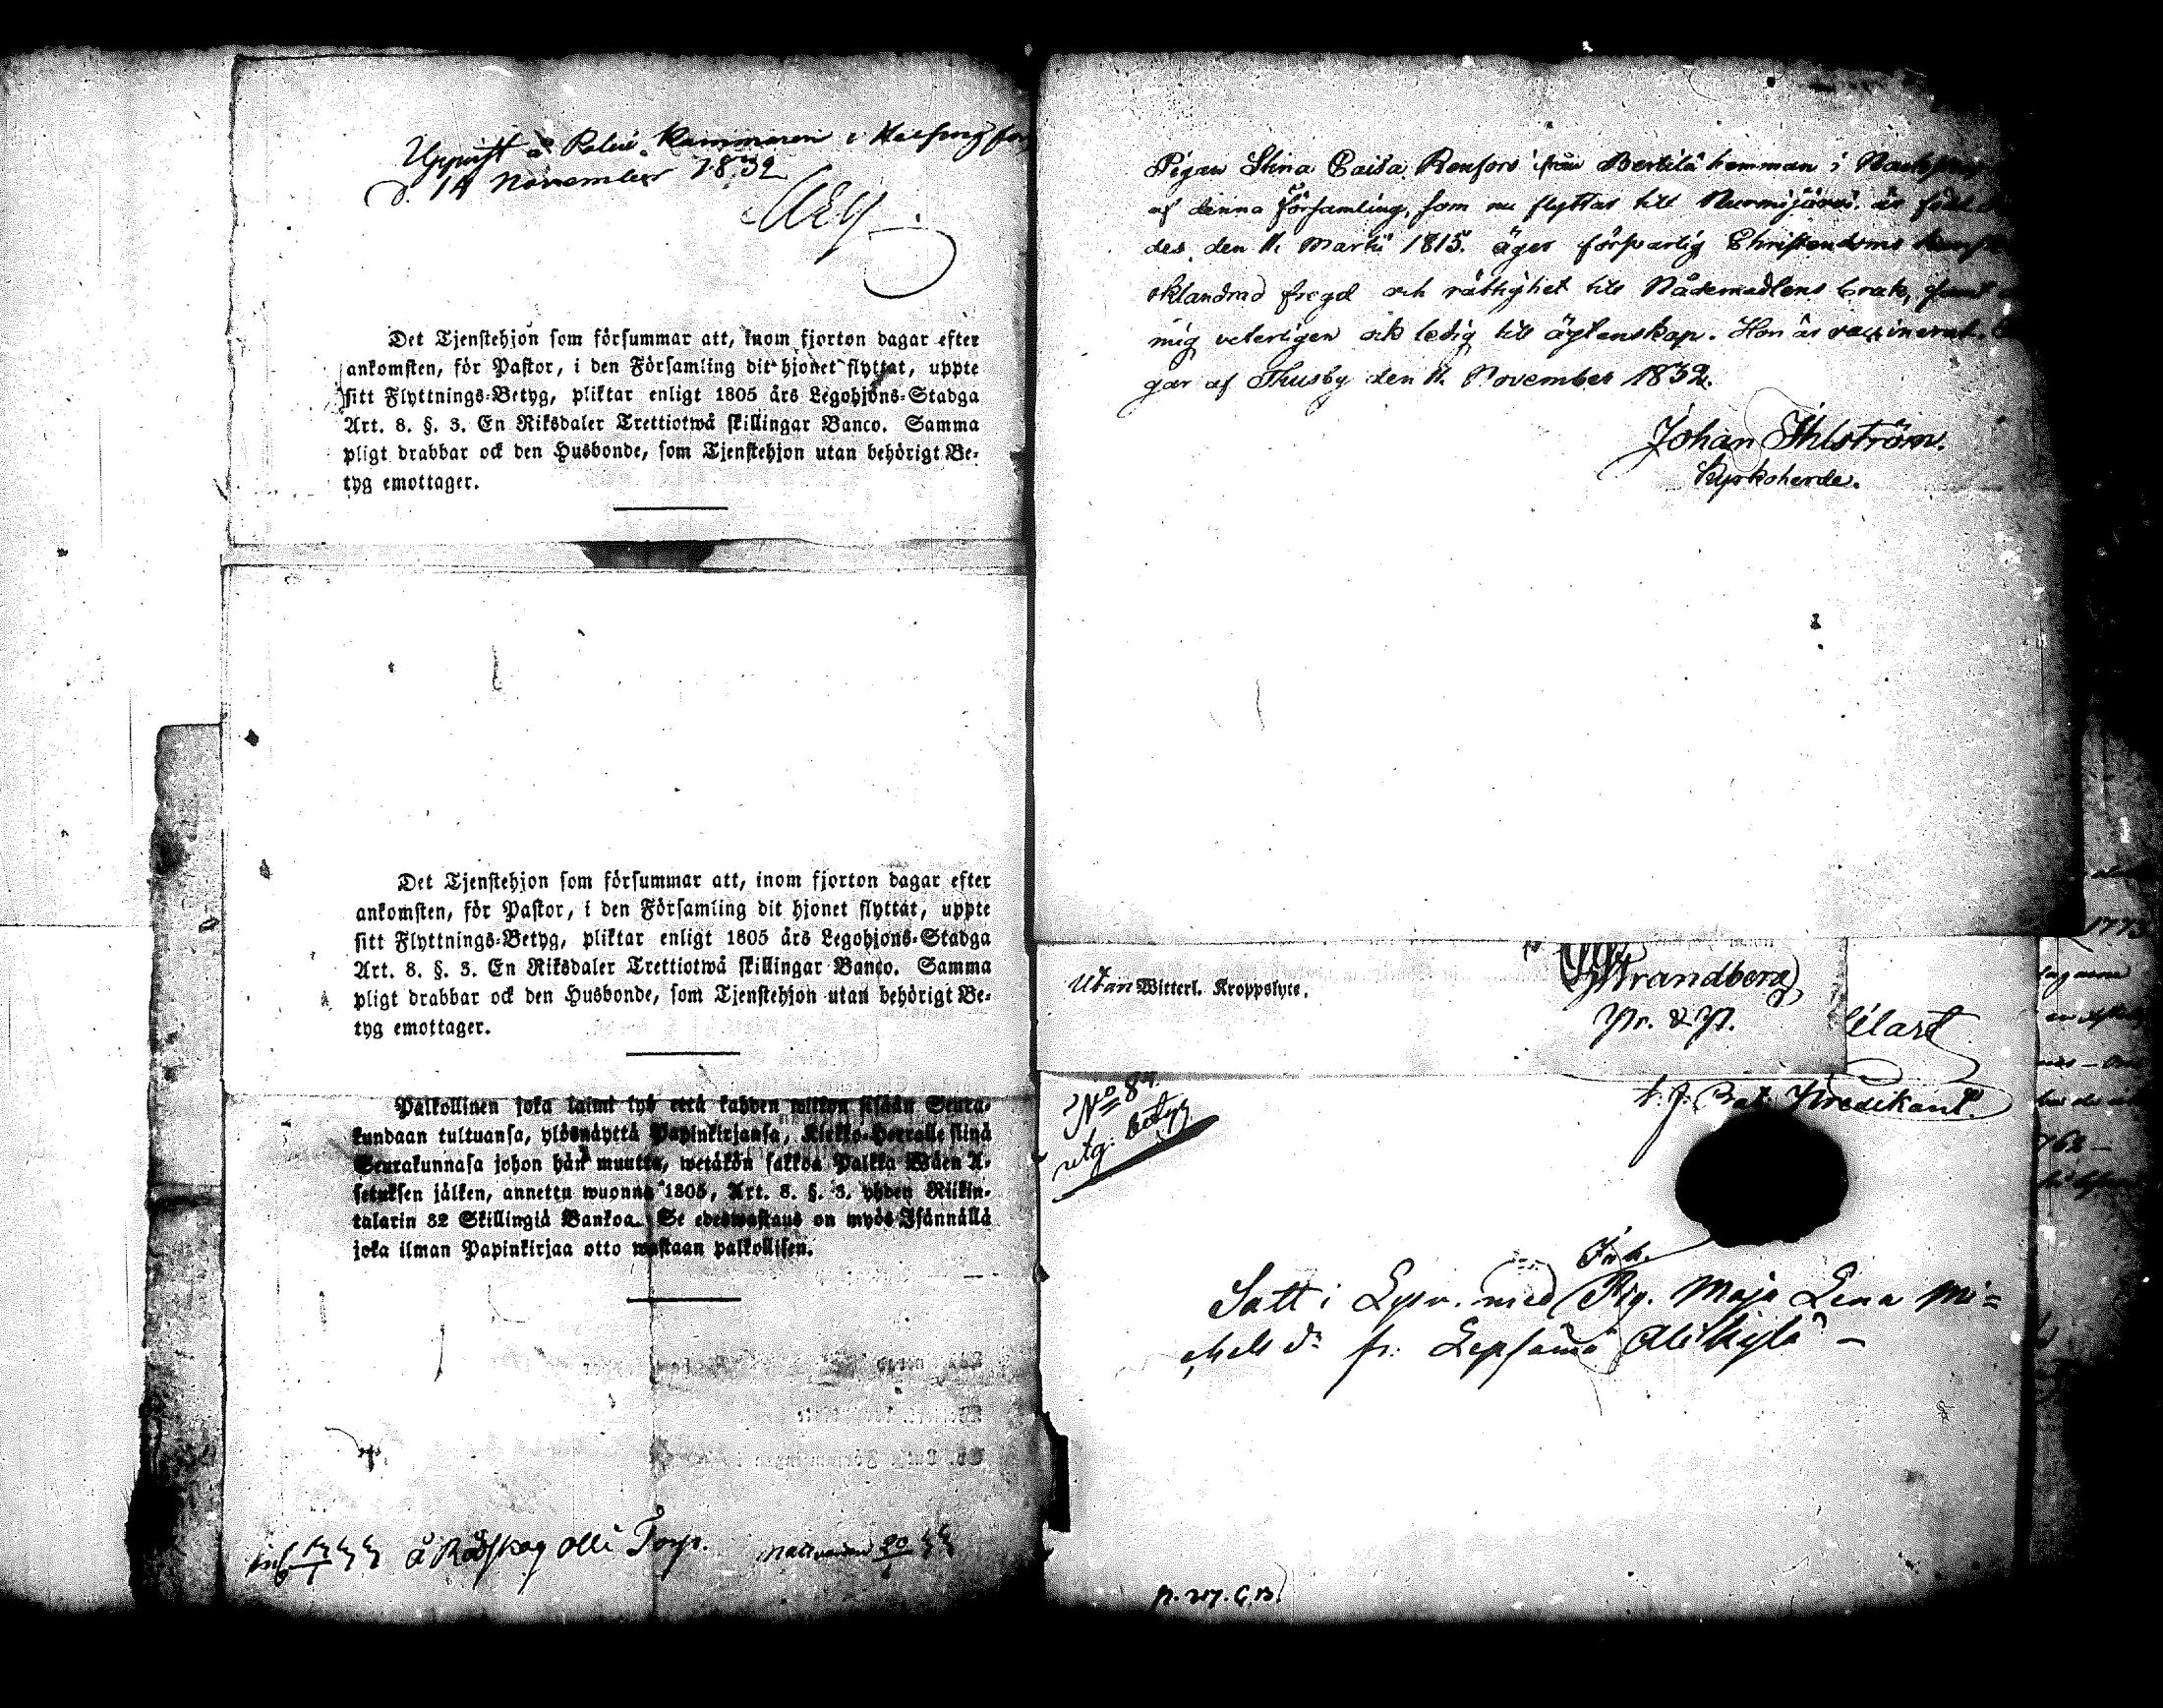 Uppvist å Polis Kammaren i Helsingfors
d. 14 November 1832
Det Tjenstehjon som försummar att, inom fjorton dagar efter
ankomsten, för Pastor, i den Församling dit hjonet flyttat, uppte
sitt Flyttnings-Betyg, pliktar enligt 1805 års Legohjons-Stadga
Art. 8. §. 3. En Riksdaler Trettiotwå skillingar Banco. Samma
pligt drabbar ock den Husbonde, som Tjenstehjon utan behörigt Be-
tyg emottager.
Det Tjenstehjon som försummar att, inom fjorton dagar efter
ankomsten, för Pastor, i den Församling dit hjonet flyttat, uppte
sitt Flyttnings-Betyg, pliktar enligt 1805 års Legohjons-Stadga
Art. 8. §. 3. En Riksdaler Trettiotwå skillingar Banco. Samma
pligt drabbar ock den Husbonde, som Tjenstehjon utan behörigt Be-
tyg emottager.
Palkollinen joka laimi lyö että kahden wiikon sisään Seura-
kundaan tultuansa, ylösnäyttä Papinkirjansa, Kirkko-Herralle siinä
Seurakunnasa johon hän muutta, wetäkön sakkoa Palkka Wäen A-
setuksen jälken, annettu wuonna 1805, Art. 8. §. 3. yhden Riikin-
talarin 32 Skillingiä Bankoa. Se edeswastaus on myös Isännällä
joka ilman Papinkirjaa otto wastaan palkollisen.
å Rådskog Olli Torp.
Pigan Stina Caisa Renfors från Bertila hemman i
af denna Församling, som nu flyttar till Nurmijärvi, är född
des. den 11. Martii 1815. äger försvarlig Christendoms
oklandrad fregd och rättighet till Nådemedlens bruk, samt
mig veterligen och ledig till ägtenskap. Hon är vaccinerad.
gar af Thusby den 11. November 1832.
Johan Ihlström.
Kyrkoherde.
Utan Witterl. Kroppslyte.
Strandberg
Pr. & P.
No 84.
utg. betyg
Predikant.
Satt i Lysn. med Pig. Maja Lena Mi=
chels dr fr. Lepsämä Alikylä –
1773